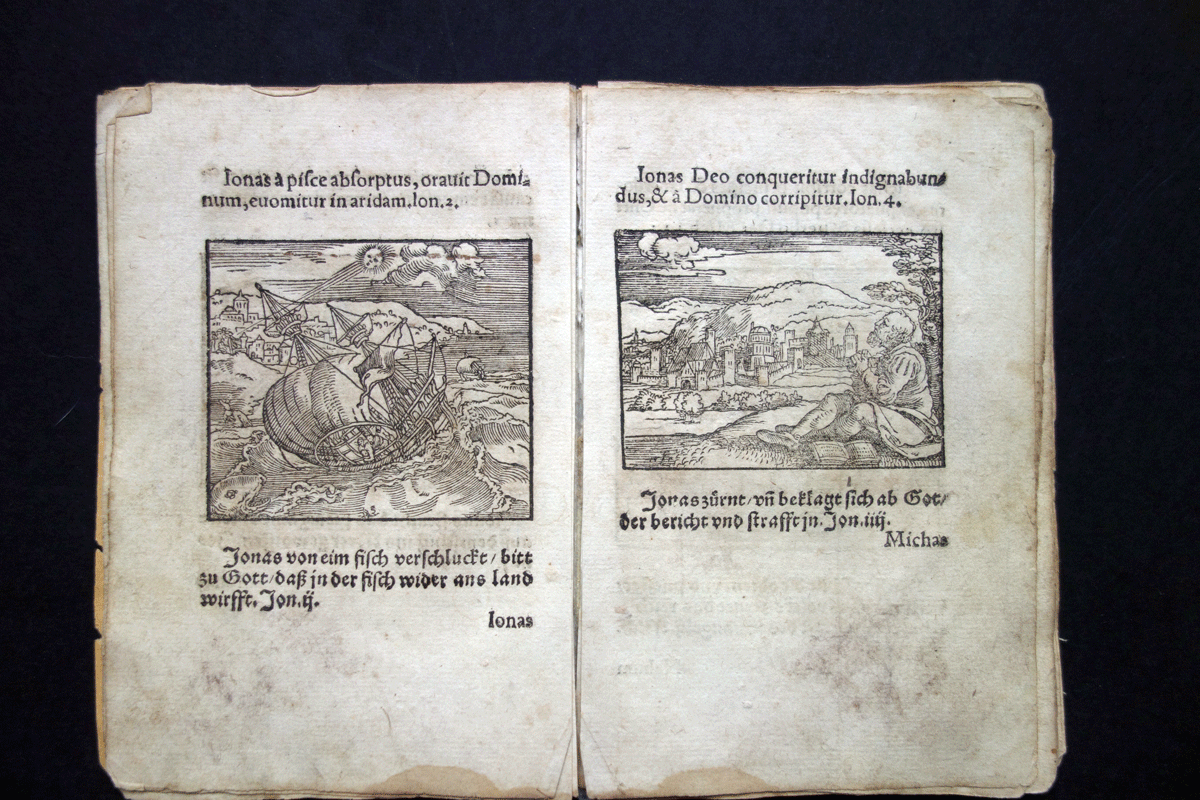 Ionas à piſce abſorptus, oravit Domi⸗
num, evomitur in aridam. Ion. 2.
Jonas von eim fiſch verſchluckt / bitt
zu Gott / daß jn der fiſch wider ans land
wirfft. Jon. ij.
Ionas
Ionas Deo conqueritur indignabun⸗
dus, & à Domino corripitur. Ion. 4.
Jonas zürnt / vñ beklagt ſich ab Got /
der bericht vnd ſtrafft jn. Jon. iiij.
Michas